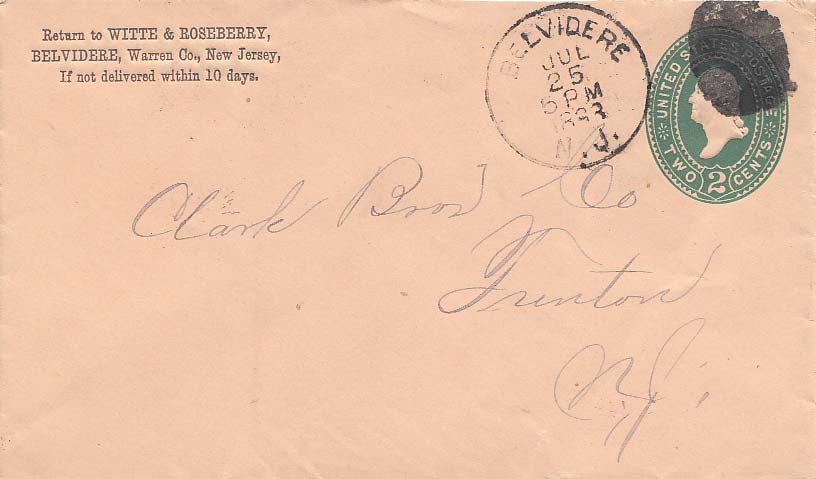 Return to WITTE & ROSEBERRY,
BELVIDERE, Warren Co., New Jersey,
If not delivered within 10 days.
BELVIDERE
JUL
25
5 PM
1893
N.J.
UNITED STATES POSTAGE
TWO 2 CENTS
Clark Bros Co
Trenton
N.J.